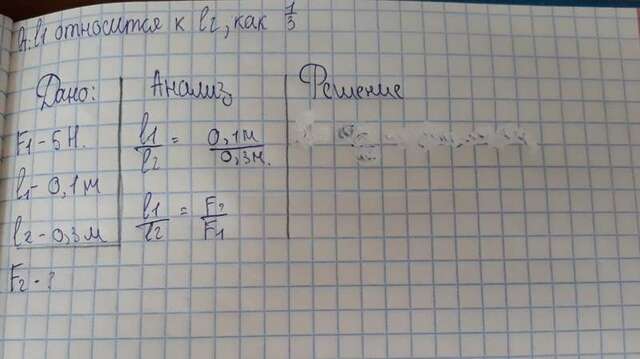 A. l1 относится к l2, как 1/3
Дано:
F1 - 5 Н.
l1 - 0,1 м
l2 - 0,3 м
F2 - ?
Анализ
l1/l2 = 0,1 м/0,3 м.
l1/l2 = F2/F1
Решение